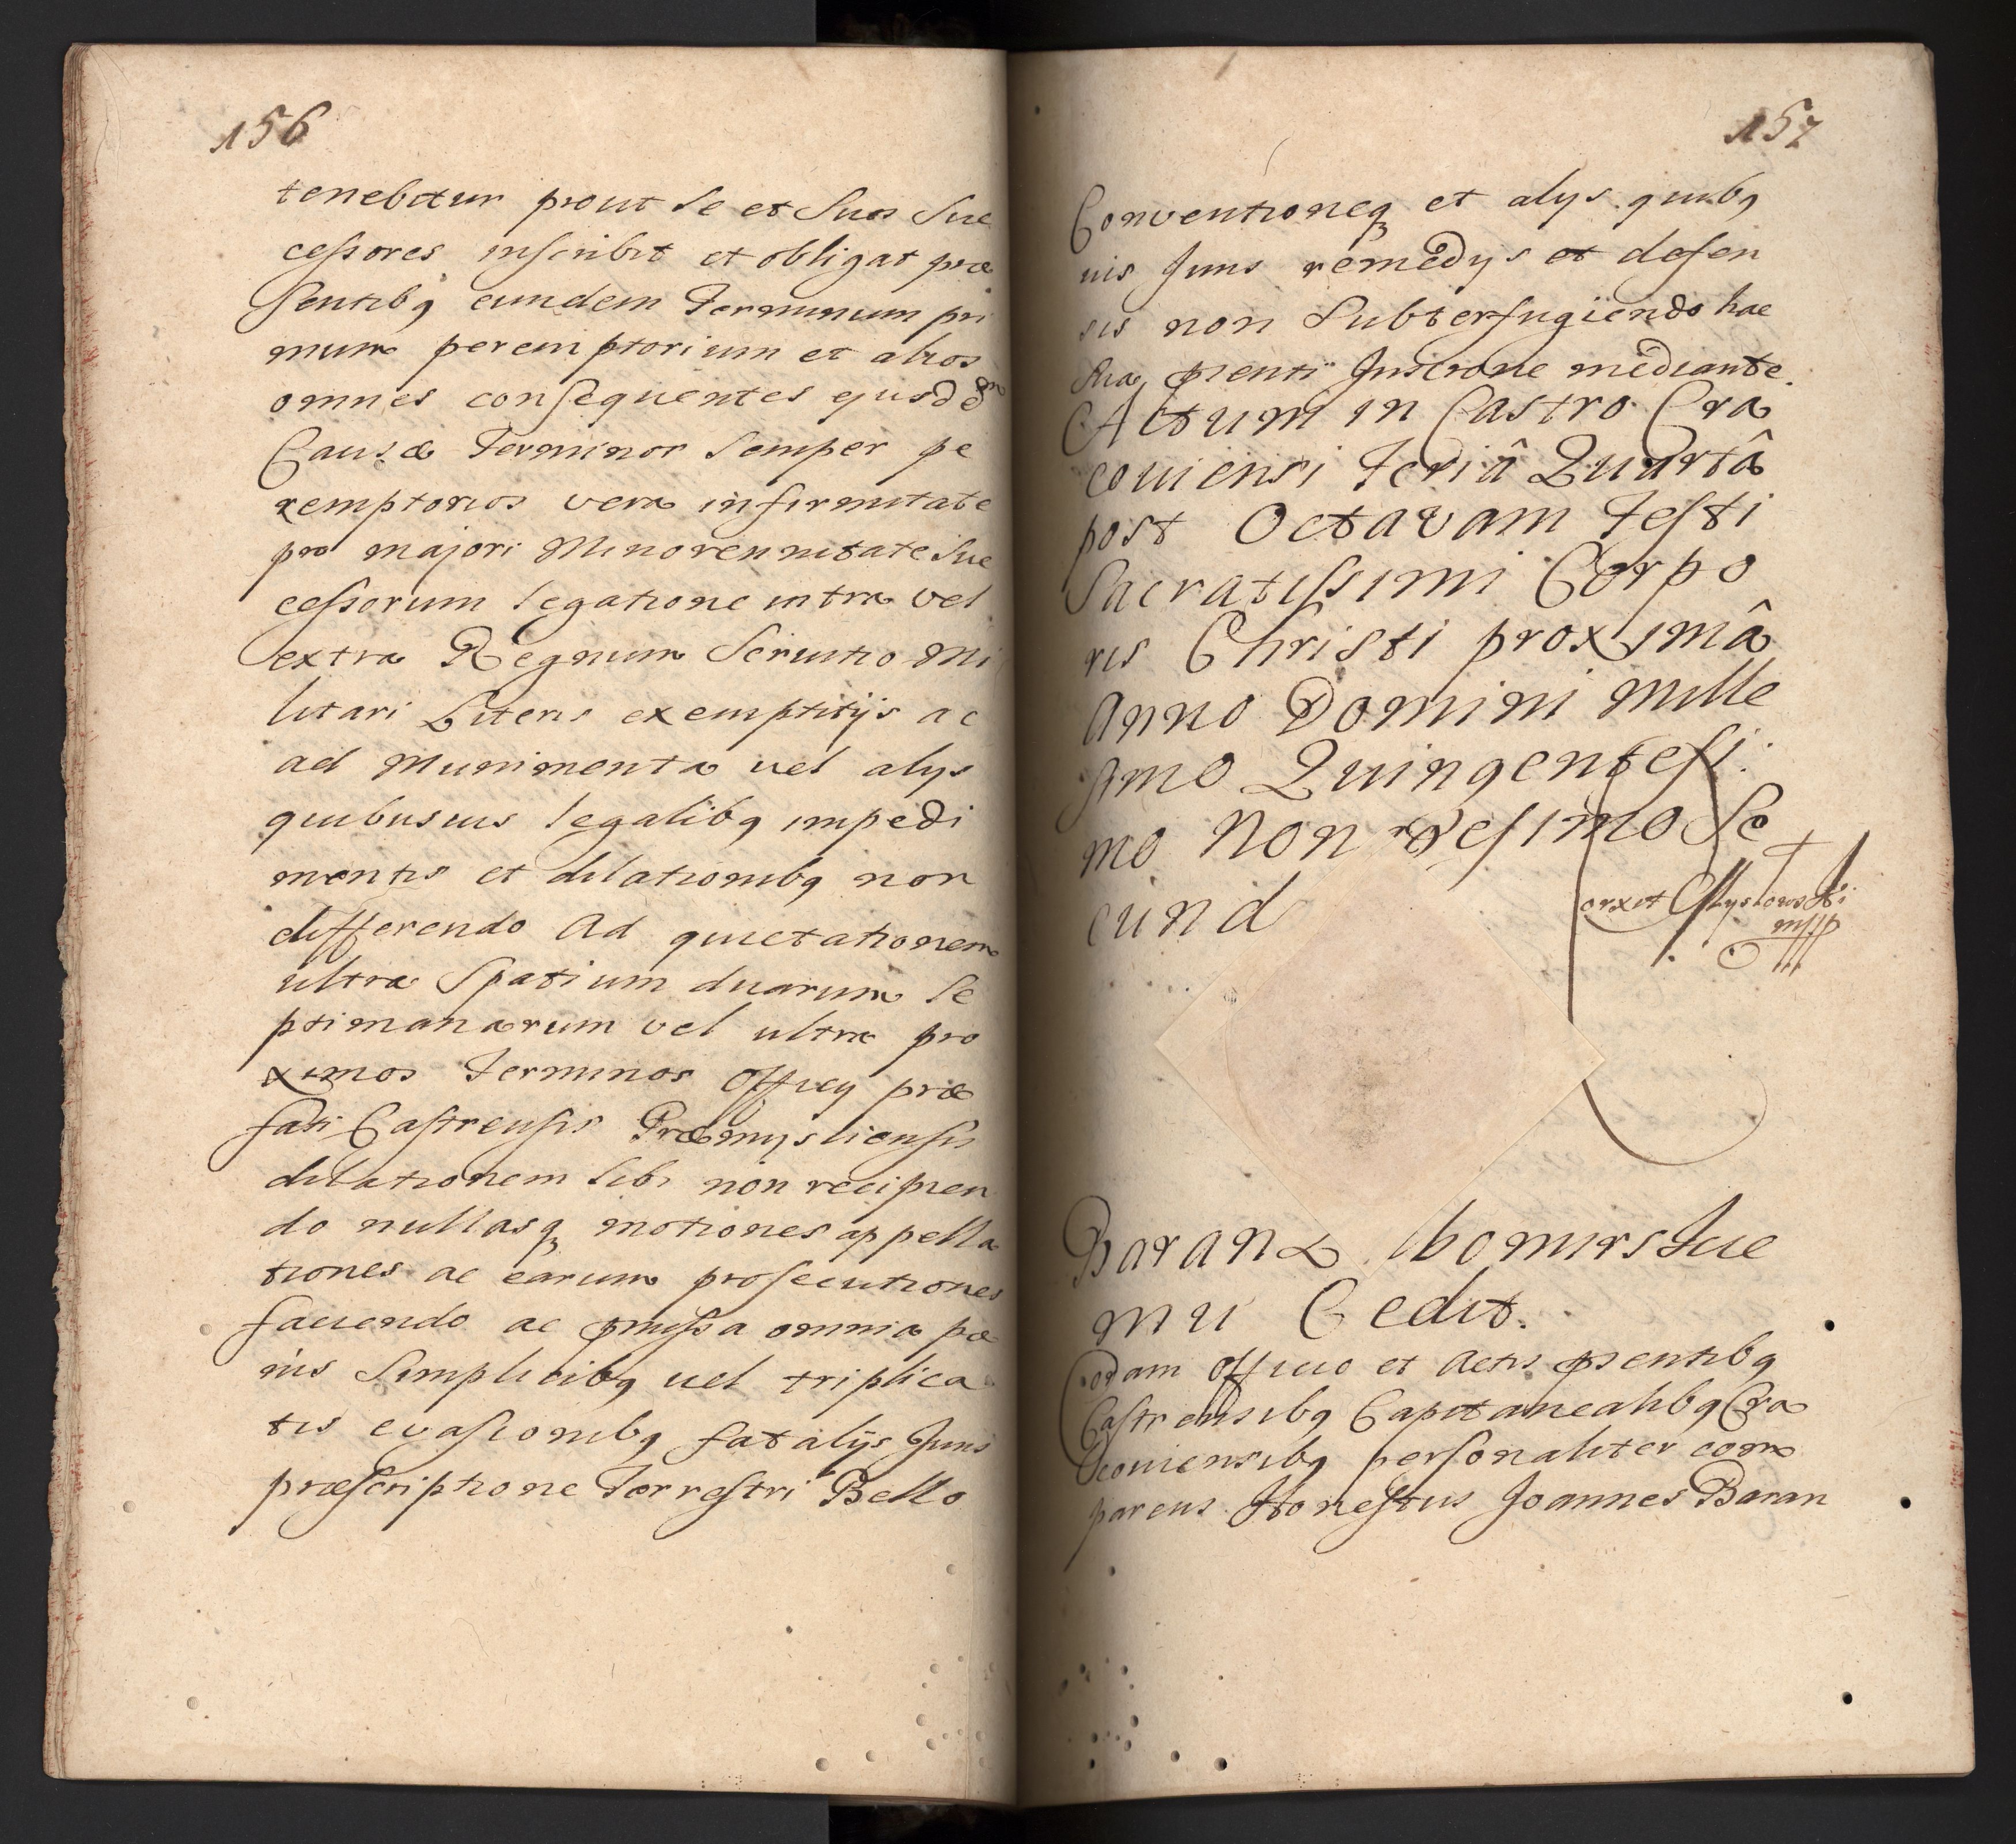 156
tenebitur prout se et suos suc
cessores inscribit et obligat præ
sentibq eundem Terminum pri
mum peremptorium et alios
omnes consequentes ejusdem
Causæ Terminos semper pe
remptorios vera infirmitate
pro majori Minorennitate suc
cessorum legatione intra vel
extra Regnum Servitio Mi
litari Literis exemptitijs ac
ad Munimenta vel alys
quibusvis legalibq impedi
mentis et dilationibq non
differendo Ad quietationem
ultra Spatium duarum Se
ptimanarum vel ultra pro
ximos Terminos Officy præ
fati Castrensis Præmysliensis
dilationem sibi non recipien
do nullasq motiones appella
tiones ac earum prosecutiones
faciendo ac pmissa omnia pæ
nis Simplicibq vel triplica
tis evasionibq fatalijs Juris
præscriptione Terrestri Bello
157
Conventioneq et alys quibq
vis Juris remedys et defen
sis non Subterfugiendo hac
sua psenti Inscrone mediante
Actum in Castro Cra
coviensi Feriâ Quartâ
post Octavam Festi
Sacratissimi Corpo
ris Christi proximâ
Anno Domini Mille
simo Quingentesi:
mo Nonagesimo Se
cund
Baran bonis Suc
mu Cedit.
Coram Officio et Actis psentibq
Castrensibq Capitanealibq Cra
coviensibq personaliter com
parens Honestus Joannes Baran